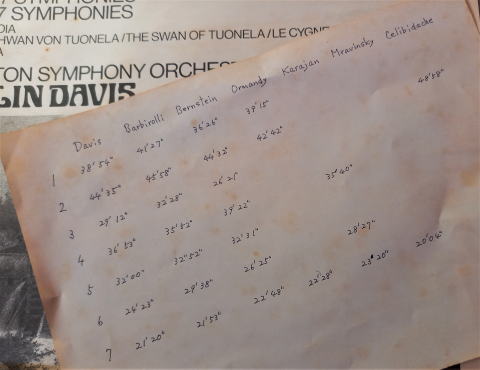 7 SYMPHONIES
HWAN VON TUONELA/THE SWAN OF TUONELA/LE CYGN
TON SYMPHONY ORCHES
LIN DAVIS
Davis Barbirolli Bernstein Ormandy Karajan Mravinsky Celibidache
1 38'54" 41'27" 36'26" 39'15"
2 44'35" 45'58" 44'32" 42'42" 48'58"
3 29'12" 32'28" 26'21"
4 36'53" 35'52" 39'22" 35'40"
5 32'00" 32'52" 32'31"
6 29'38" 26'25" 28'27"
7 21'20" 21'53" 22'48" 22'28" 23'20" 20'06"